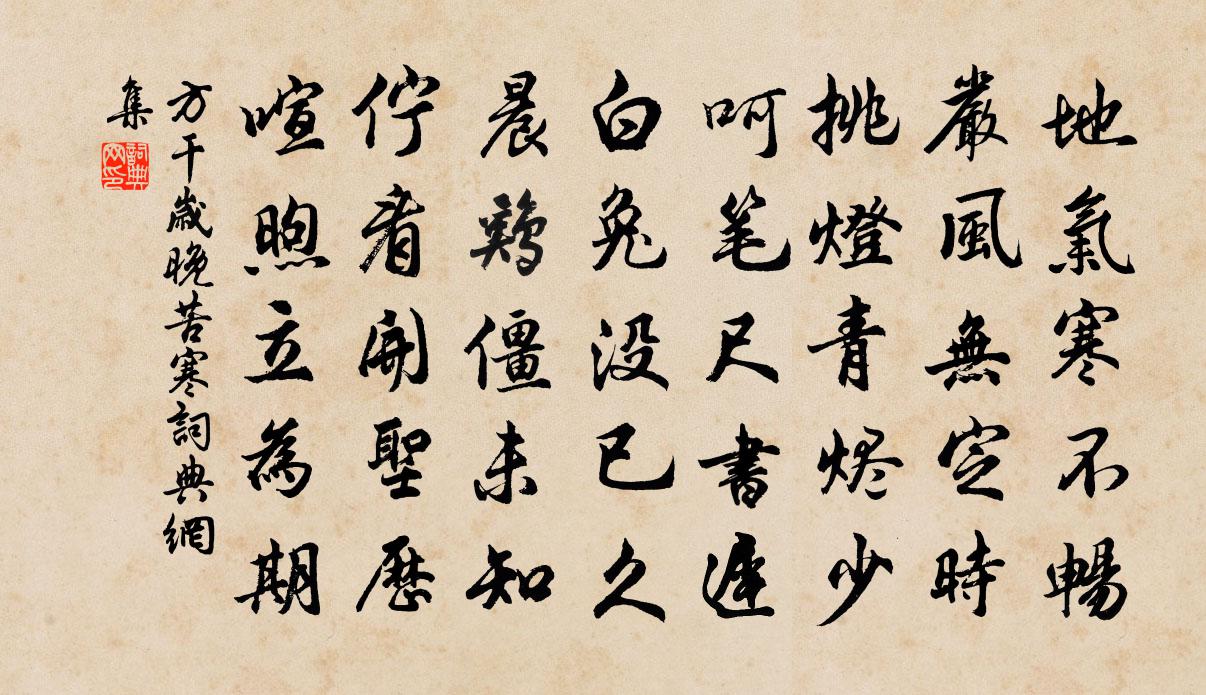 地氣寒不暢
嚴風無定時
挑燈青烬少
呵笔尺書遲
白兔没已久
晨鷄僵未知
佇看開聖歷
喧煦立為期
方干歲晚苦寒詞典網
集
詞典網印